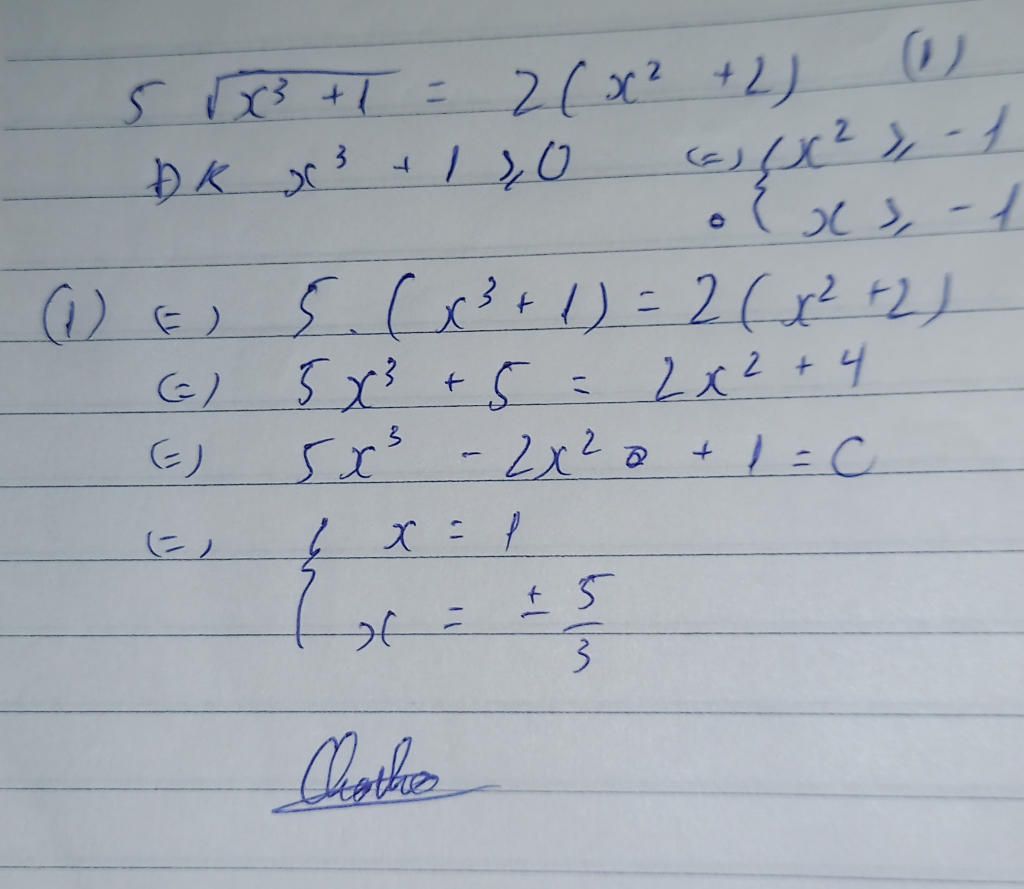 5 √(x³ + 1) = 2(x² + 2) (1)
ĐK x³ + 1 ≥ 0 <=> { x² ≥ -1
{ x ≥ -1
(1) <=> 5 . (x³ + 1) = 2(x² + 2)
<=> 5x³ + 5 = 2x² + 4
<=> 5x³ - 2x² + 1 = 0
<=> { x = 1
{ x = ± 5/3